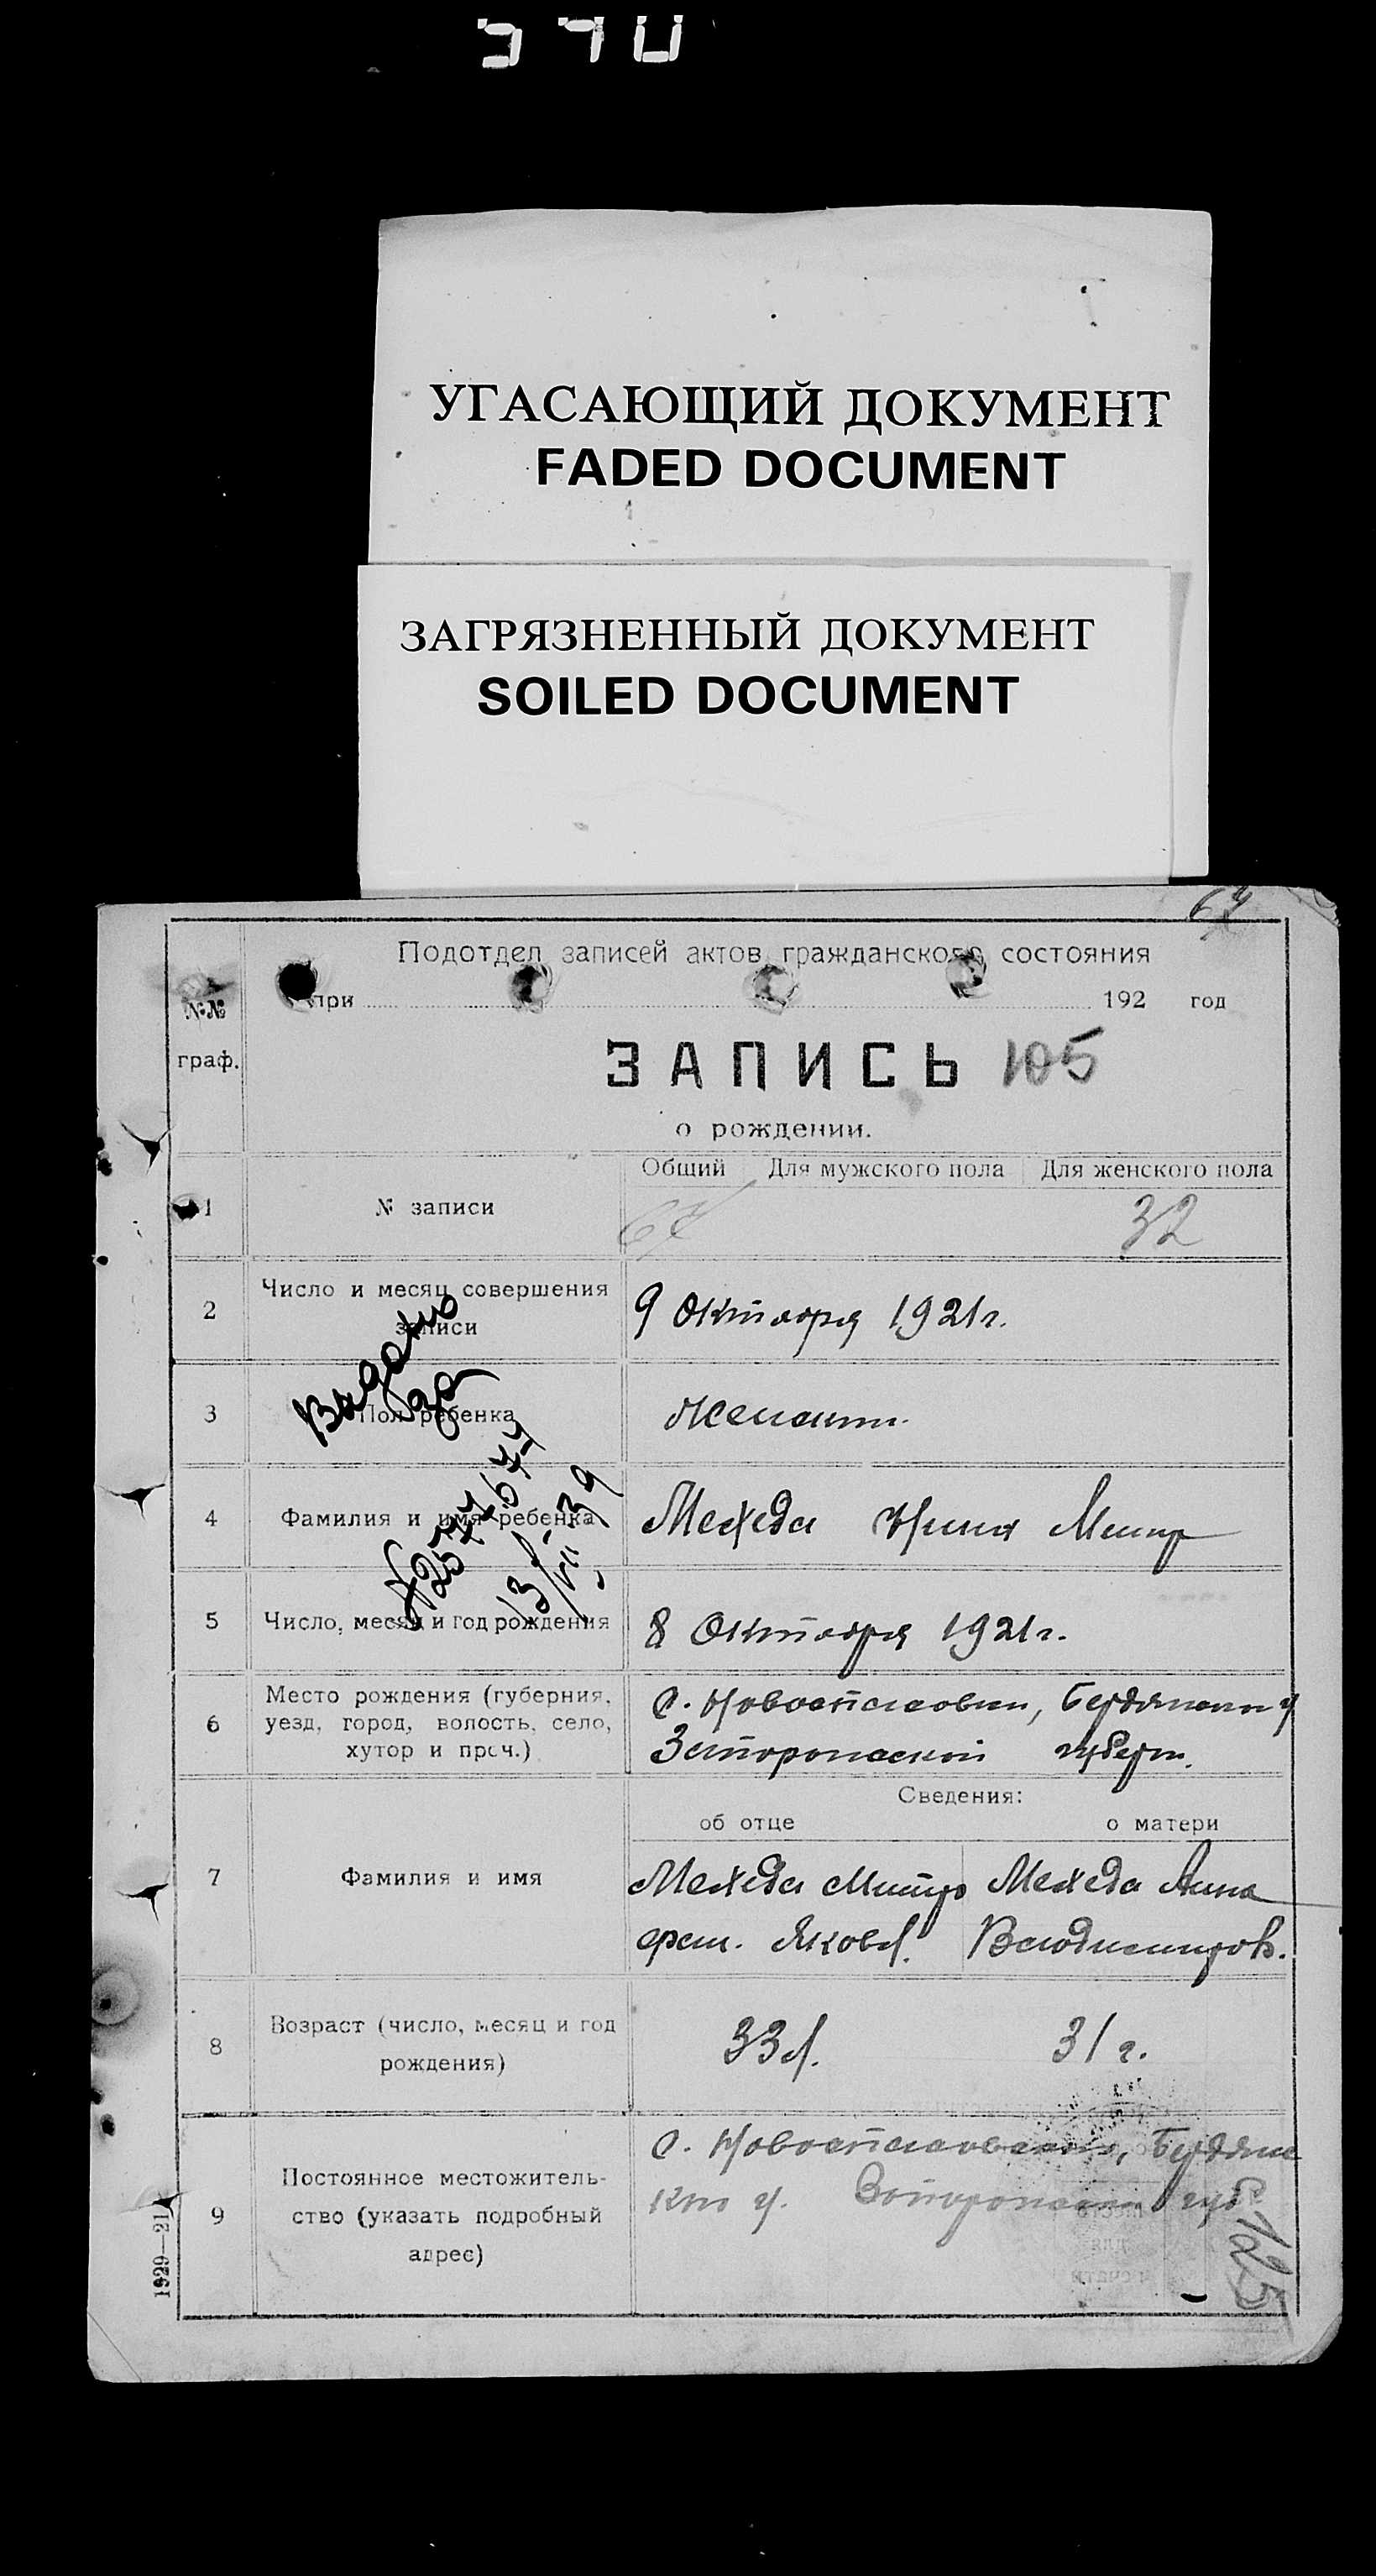 УГАСАЮЩИЙ ДОКУМЕНТ
FADED DOCUMENT
ЗАГРЯЗНЕННЫЙ ДОКУМЕНТ
SOILED DOCUMENT
67
Подотдел записей актов гражданского состояния
№№ при 192 год
граф.
ЗАПИСЬ 105
о рождении.
Общий Для мужского пола Для женского пола
1 № записи 67 32
2 Число и месяц совершения записи 9 Октября 1921 г.
3 Пол ребенка женский
4 Фамилия и имя ребенка
5 Число, месяц и год рождения 8 Октября 1921 г.
6 Место рождения (губерния,
уезд, город, волость, село,
хутор и проч.)
с. Новоспасовки, Бердянск у
губерн.
Сведения:
об отце о матери
7 Фамилия и имя
Анна
Яковл. Владимиров.
8 Возраст (число, месяц и год
рождения)
33 л. 31 г.
9 Постоянное местожитель-
ство (указать подробный
адрес)
с. Бердянс
губ
125
1929—21
13/VII-39